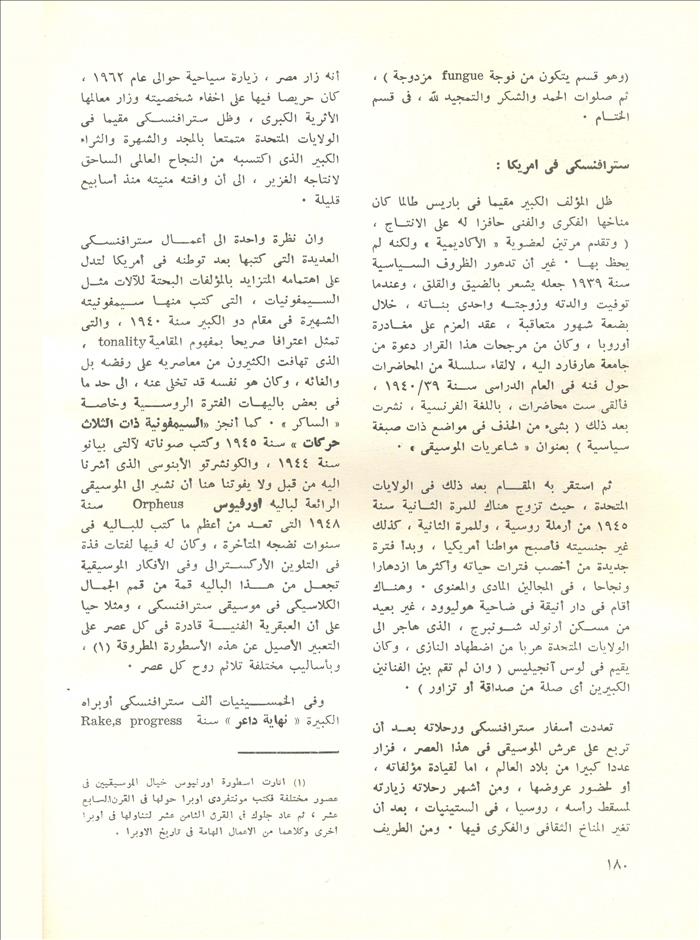 (وهو قسم يتكون من فوجة fungue مزدوجة ) ،
ثم صلوات الحمد والشكر والتمجيد لله ، فى قسم
الختـام ٠
سترافنسكى فى أمريكا :
ظل المؤلف الكبير مقيما فى باريس طالما كان
مناخها الفكرى والفنى حافزا له على الانتـاج ،
( وتقدم مرتين لعضوية « الأكاديمية » ولكنه لم
يحظ بهـا ٠ غير أن تدهور الظروف السـياسية
سنة ١٩٣٩ جعله يشعر بالضيق والقلق ، وعندما
توفيت والدته وزوجتـه واحدى بنـاته ، خلال
بضعة شهور متعاقبة ، عقد العزم على مغـادرة
أوروبا ، وكان من مرجحات هذا القرار دعوة من
جامعة هارفارد اليه ، لالقاء سلسلة من المحاضرات
حول فنه فى العام الدراسى سـنة ١٩٤٠/٣٩ ،
فألقى ست محاضرات ، باللغة الفرنسية ، نشرت
بعد ذلك ( بشىء من الحذف فى مواضع ذات صبغة
سياسية ) بعنوان « شاعريات الموسيقى » ٠
ثم استقر به المقـام بعد ذلك فى الولايات
المتحدة ، حيث تزوج هناك للمرة الثـانية سنة
١٩٤٥ من أرملة روسية ، وللمرة الثانية ، كذلك
غير جنسيته فأصبح مواطنا أمريكيا ، وبدأ فترة
جديدة من أخصب فترات حياته وأكثرها ازدهارا
ونجاحا ، فى المجالين المادى والمعنوى ٠ وهنـاك
أقام فى دار أنيقة فى ضاحية هوليوود ، غير بعيد
من مسـكن أرنولد شـونبرج ، الذى هاجر الى
الولايات المتحدة هربا من اضطهاد النازى ، وكان
يقيم فى لوس آنجيليس ( وان لم تقم بين الفنانين
الكبيرين أى صلة من صداقة أو تزاور ) ٠
تعددت أسفار سترافنسكى ورحلاته بعـد أن
تربع على عرش الموسيقى فى هذا العصر ، فزار
عددا كبيرا من بلاد العالم ، اما لقيادة مؤلفاته ،
أو لحضور عروضها ، ومن أشهر رحلاته زيارته
لمسقط رأسه ، روسيا ، فى الستينيات ، بعد أن
تغير المناخ الثقافى والفكرى فيها ٠ ومن الطريف
أنه زار مصر ، زيارة سياحية حوالى عام ١٩٦٢ ،
كان حريصا فيها على اخفاء شخصيته وزار معالمها
الأثرية الكبرى ، وظل سترافنسكى مقيما فى
الولايات المتحدة متمتعا بالمجد والشهرة والثراء
الكبير الذى اكتسبه من النجاح العالمى الساحق
لانتاجه الغزير ، الى أن وافته منيته منذ أسابيع
قليلة ٠
وان نظرة واحدة الى أعمـــال سترافنسـكى
العديدة التى كتبها بعد توطنه فى أمريكا لتدل
على اهتمامه المتزايد بالمؤلفات البحتة للآلات مثـل
السـيمفونيات ، التى كتب منهـا سـيمفونيته
الشهيرة فى مقام دو الكبير سنة ١٩٤٠ ، والتى
تمثل اعترافا صريحا بمفهوم المقامية tonality ،
الذى تهافت الكثيرون من معاصريه على رفضه بل
والغائه ، وكان هو نفسه قد تخلى عنه ، الى حد ما
فى بعض باليهـات الفترة الروســية وخاصـة
« الساكر » ٠ كما أنجز «السيمفونية ذات الثلاث
حركات » سنة ١٩٤٥ وكتب صوناته لآلتى بيانو
سنة ١٩٤٤ ، والكونشرتو الأبنوسى الذى أشرنا
اليه من قبل ولا يفوتنا هنا أن نشير الى الموسيقى
الرائعة لباليه أورفيوس Orpheus سنة
١٩٤٨ التى تعـد من أعظم ما كتب للبـاليه فى
سنوات نضجه المتأخرة ، وكان له فيها لفتات فذة
فى التلوين الأركسـترالى وفى الأفكار الموسيقية
تجعـل من هـــذا الباليه قمة من قمم الجمـال
الكلاسيكى فى موسيقى سترافنسكى ، ومثلا حيا
على أن العبقرية الفنيـة قادرة فى كل عصر على
التعبير الأصيل عن هذه الأسطورة المطروقة (١) ،
وبأساليب مختلفة تلائم روح كل عصر ٠
وفى الخمســينيات ألف سترافنسكى أوبراه
الكبيرة « نهاية داعر » سنة Rake,s progress
(١) أثارت أسطورة أورفيوس خيال الموسيقيين فى
عصور مختلفة فكتب مونتفردى أوبرا حولها فى القرن السابع
عشر ، ثم عاد جلوك فى القرن الثامن عشر لتناولها فى أوبرا
أخرى وكلاهما من الاعمال الهامة فى تاريخ الاوبرا ٠
١٨٠